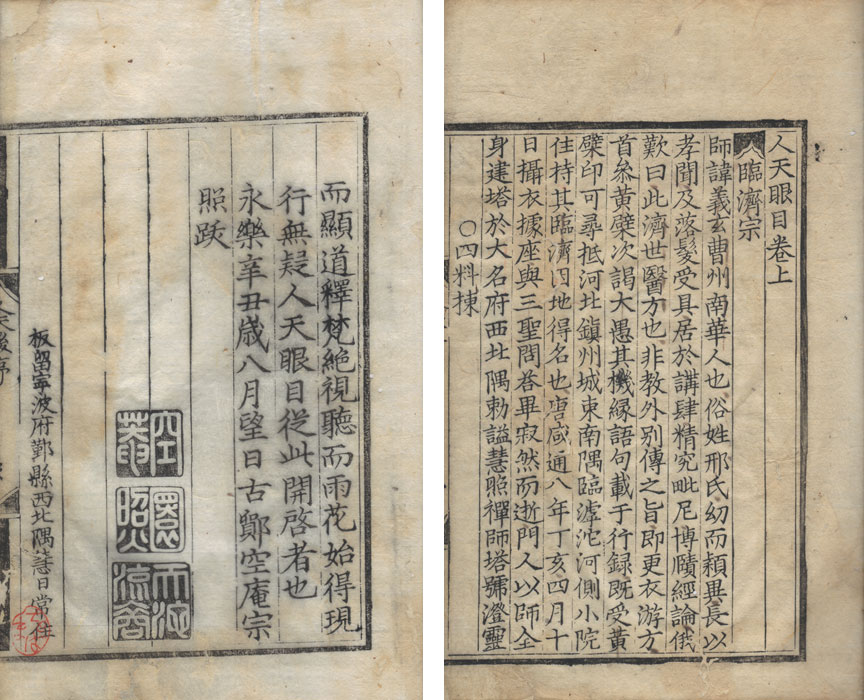 人天眼目卷上
臨濟宗
師諱義玄曹州南華人也俗姓邢氏幼而穎異長以
孝聞及落髮受具居於講肆精究毗尼博賾經論俄
歎曰此濟世醫方也非教外別傳之旨即更衣游方
首叅黃檗次謁大愚其機緣語句載于行録既受黃
檗印可尋抵河北鎮州城東南隅臨滹沱河側小院
住持其臨濟因地得名也唐咸通八年丁亥四月十
日攝衣據座與三聖問荅畢寂然而逝門人以師全
身建塔於大名府西北隅勑謚慧照禪師塔號澄靈
〇四料揀
而顯道釋梵絶視聽而雨花始得現
行無疑人天眼目從此開啓者也
永樂辛丑歲八月望日古鄮空庵宗
照跋
板留寧波府鄞縣西北隅慧日常住